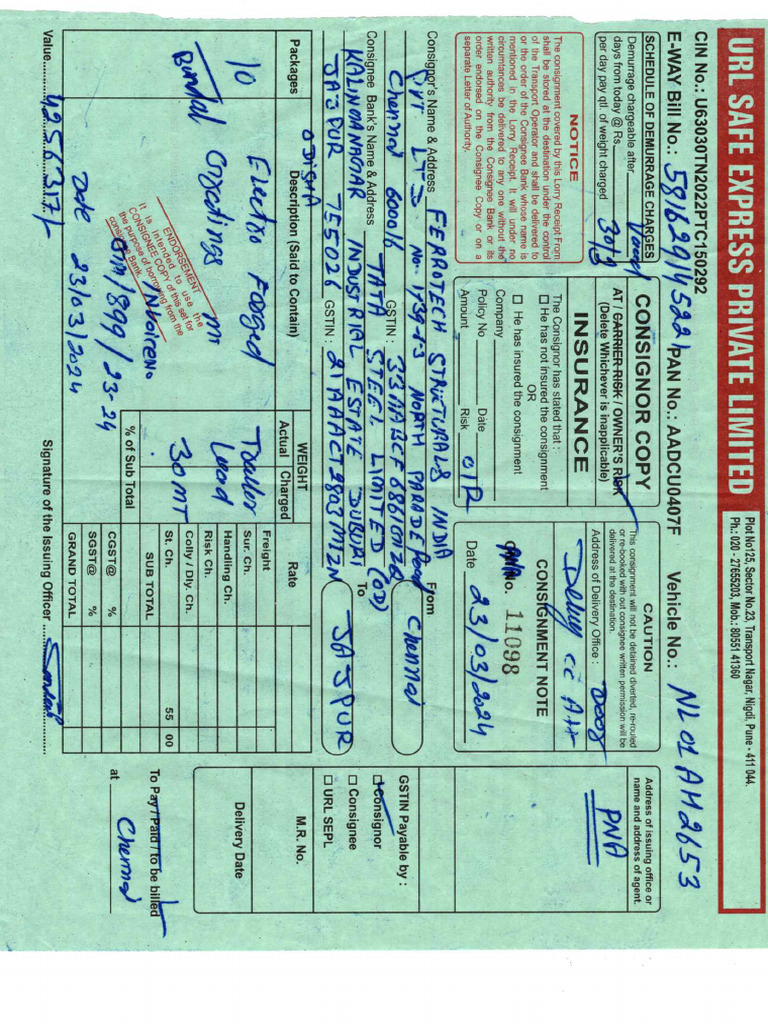 URL SAFE EXPRESS PRIVATE LIMITED
Plot No125, Sector No.23, Transport Nagar, Nigdi, Pune - 411 044.
Ph.: 020 - 27655203, Mob.: 80551 41360
CIN No.: U63030TN2022PTC150292
E-WAY Bill No.: 581629145221 PAN No.: AADCU0407F Vehicle No.: NL 01 AH 2653
SCHEDULE OF DEMURRAGE CHARGES
Demurrage chargeable after
days from today @ Rs.
per day pay qtl. of weight charged
30/3
NOTICE
The consignment covered by this Lorry Receipt From
shall be stored at the destination under the control
of the Transport Operator and shall be delivered to
or the order of the Consignee Bank whose name is
mentioned in the Lorry Receipt. It will under no
circumstances be delivered to any one without the
written authority from the Consignee Bank or its
order endorsed on the Consignee Copy or on a
separate Letter of Authority.
CONSIGNOR COPY
AT / CARRIER RISK / OWNER'S RISK
(Delete Whichever is inapplicable)
INSURANCE
The Consignor has stated that :
He has not insured the consignment
OR
He has insured the consignment
Company
Policy No Date
Amount Risk O/R
CAUTION
This consignment will not be detained diverted, re-rouled
or re-booked with out consignee written permission will be
delivered at the destination.
Address of Delivery Office :
Door
CONSIGNMENT NOTE
No. 11098
Date 23/03/2024
Address of issuing office or
name and address of agent.
PNA
Consignor's Name & Address FERROTECH STRUCTURALS INDIA
PVT LTD No. 1739-13 NORTH PARADE Road
Chennai 600016 GSTIN : 33AABCF6861G1ZQ
From
Chennai
Consignee Bank's Name & Address TATA STEEL LIMITED (OD)
KALINGANAGAR INDUSTRIAL ESTATE DUBURI
JAJPUR 755026 GSTIN : 21AAACT2803M1ZN
ODISHA
To
JAJPUR
GSTIN Payable by :
Consignor
Consignee
URL SEPL
Packages
Description (Said to Contain)
WEIGHT
Actual Charged
Rate
10
Bundal
Electro Forged
Gratings
Trailer
Load
30 MT
ENDORSEMENT
It is intended to use the
CONSIGNEE COPY of this set for
the purpose of borrowing from the
consignee Bank
Invoice No
899/23-24
Date 23/03/2024
% of Sub Total
Freight
Sur. Ch.
Handling Ch.
Risk Ch.
Colly / Dly. Ch.
St. Ch. 55 00
SUB TOTAL
CGST@ %
SGST@ %
GRAND TOTAL
M.R. No.
Delivery Date
To Pay / Paid / To be billed
at Chennai
Value 4256317/-
Signature of the Issuing Officer